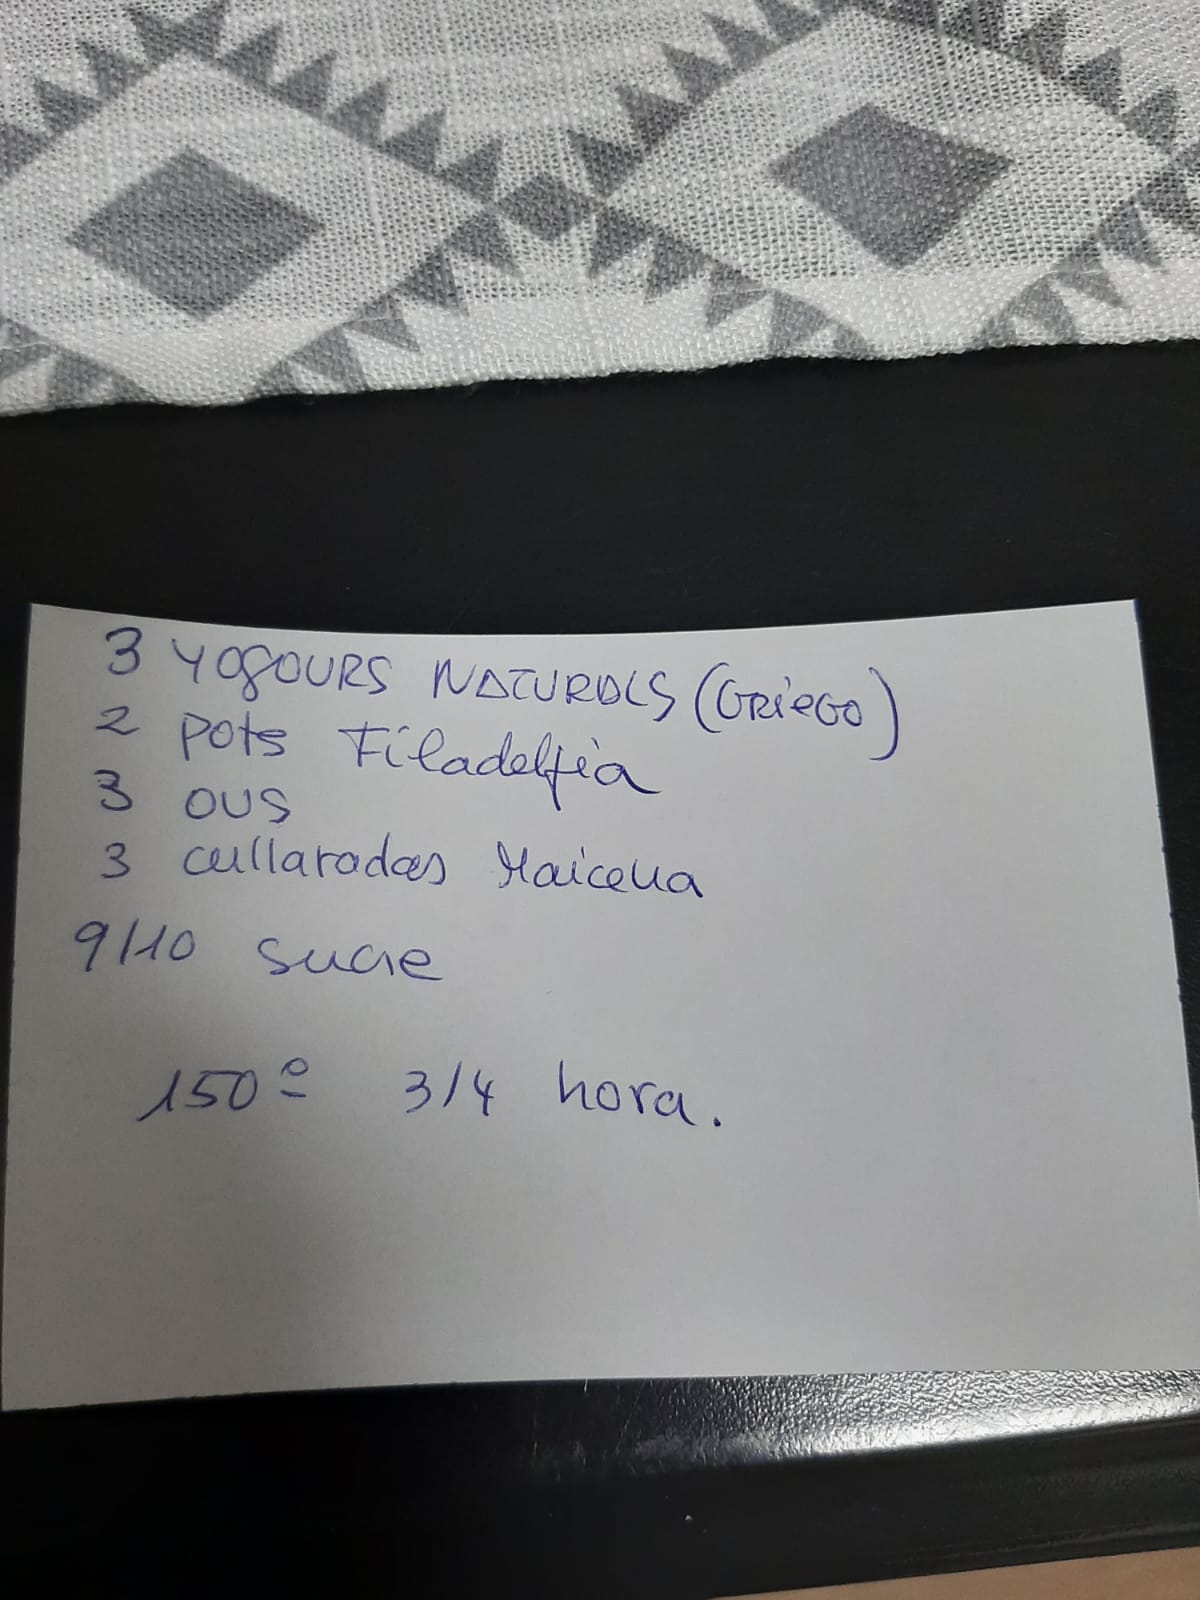 3 YOGOURS NATURALS (GRiEGO)
2 pots Filadelfia
3 OUS
3 cullaradas Maicena
9/10 sucre
150º 3/4 hora.